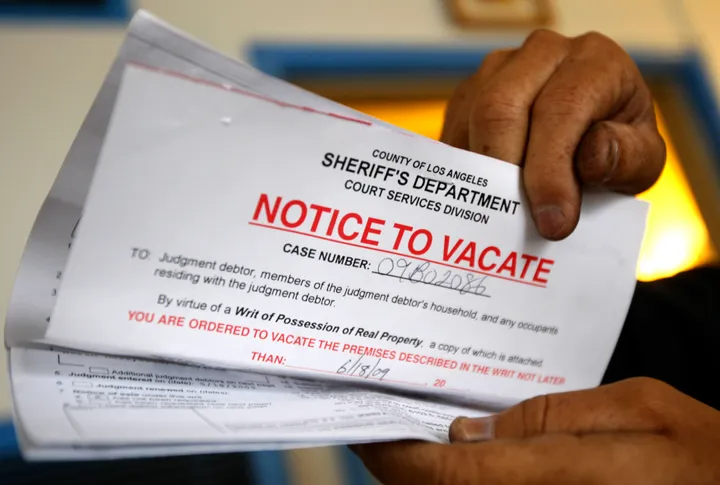 COUNTY OF LOS ANGELES
SHERIFF'S DEPARTMENT
COURT SERVICES DIVISION
NOTICE TO VACATE
CASE NUMBER: 09B02086
TO: Judgment debtor, members of the judgment debtor's household, and any occupants
residing with the judgment debtor.
By virtue of a Writ of Possession of Real Property, a copy of which is attached
YOU ARE ORDERED TO VACATE THE PREMISES DESCRIBED IN THE WRIT NOT LATER
THAN: 6/18/09, 20
Additional judgment debtors on
5. Judgment entered on (date):
6. Judgment renewed on (dates):
7. Notice of sale under this writ